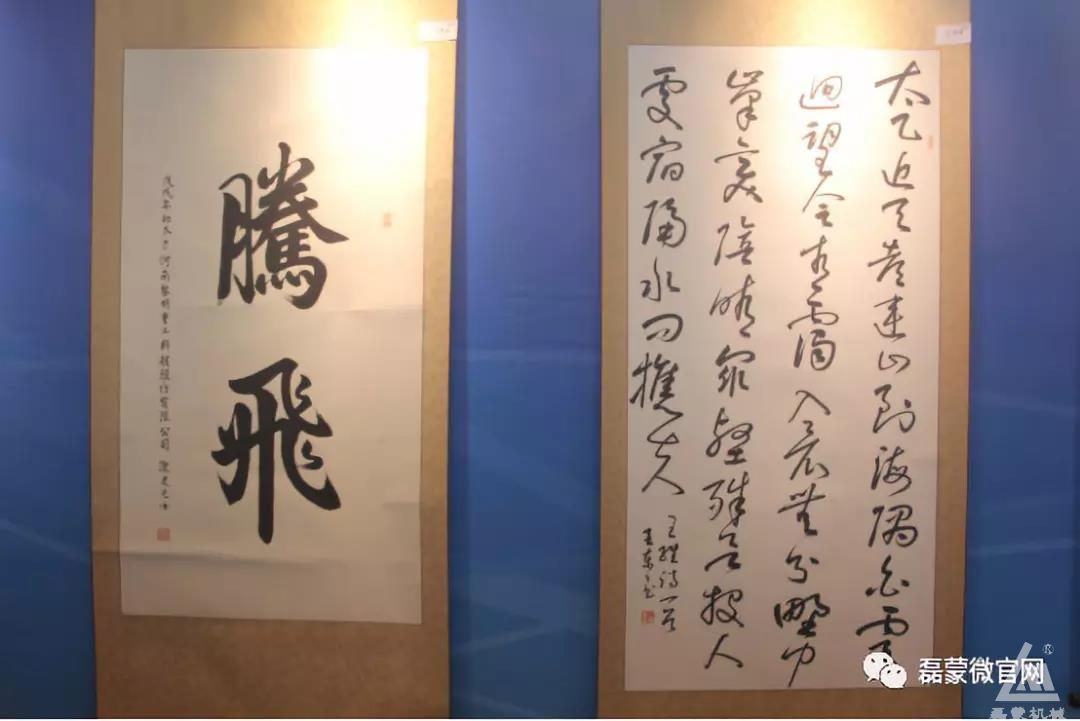 騰飛
戊戌年初冬于河南黎明重工科技股份有限公司
太乙近天都連山到海隅白雲
迴望合青靄入看無分野中
峯變陰晴衆壑殊欲投人
處宿隔水問樵夫
王維詩一首
王東
磊蒙微官网
磊蒙机械